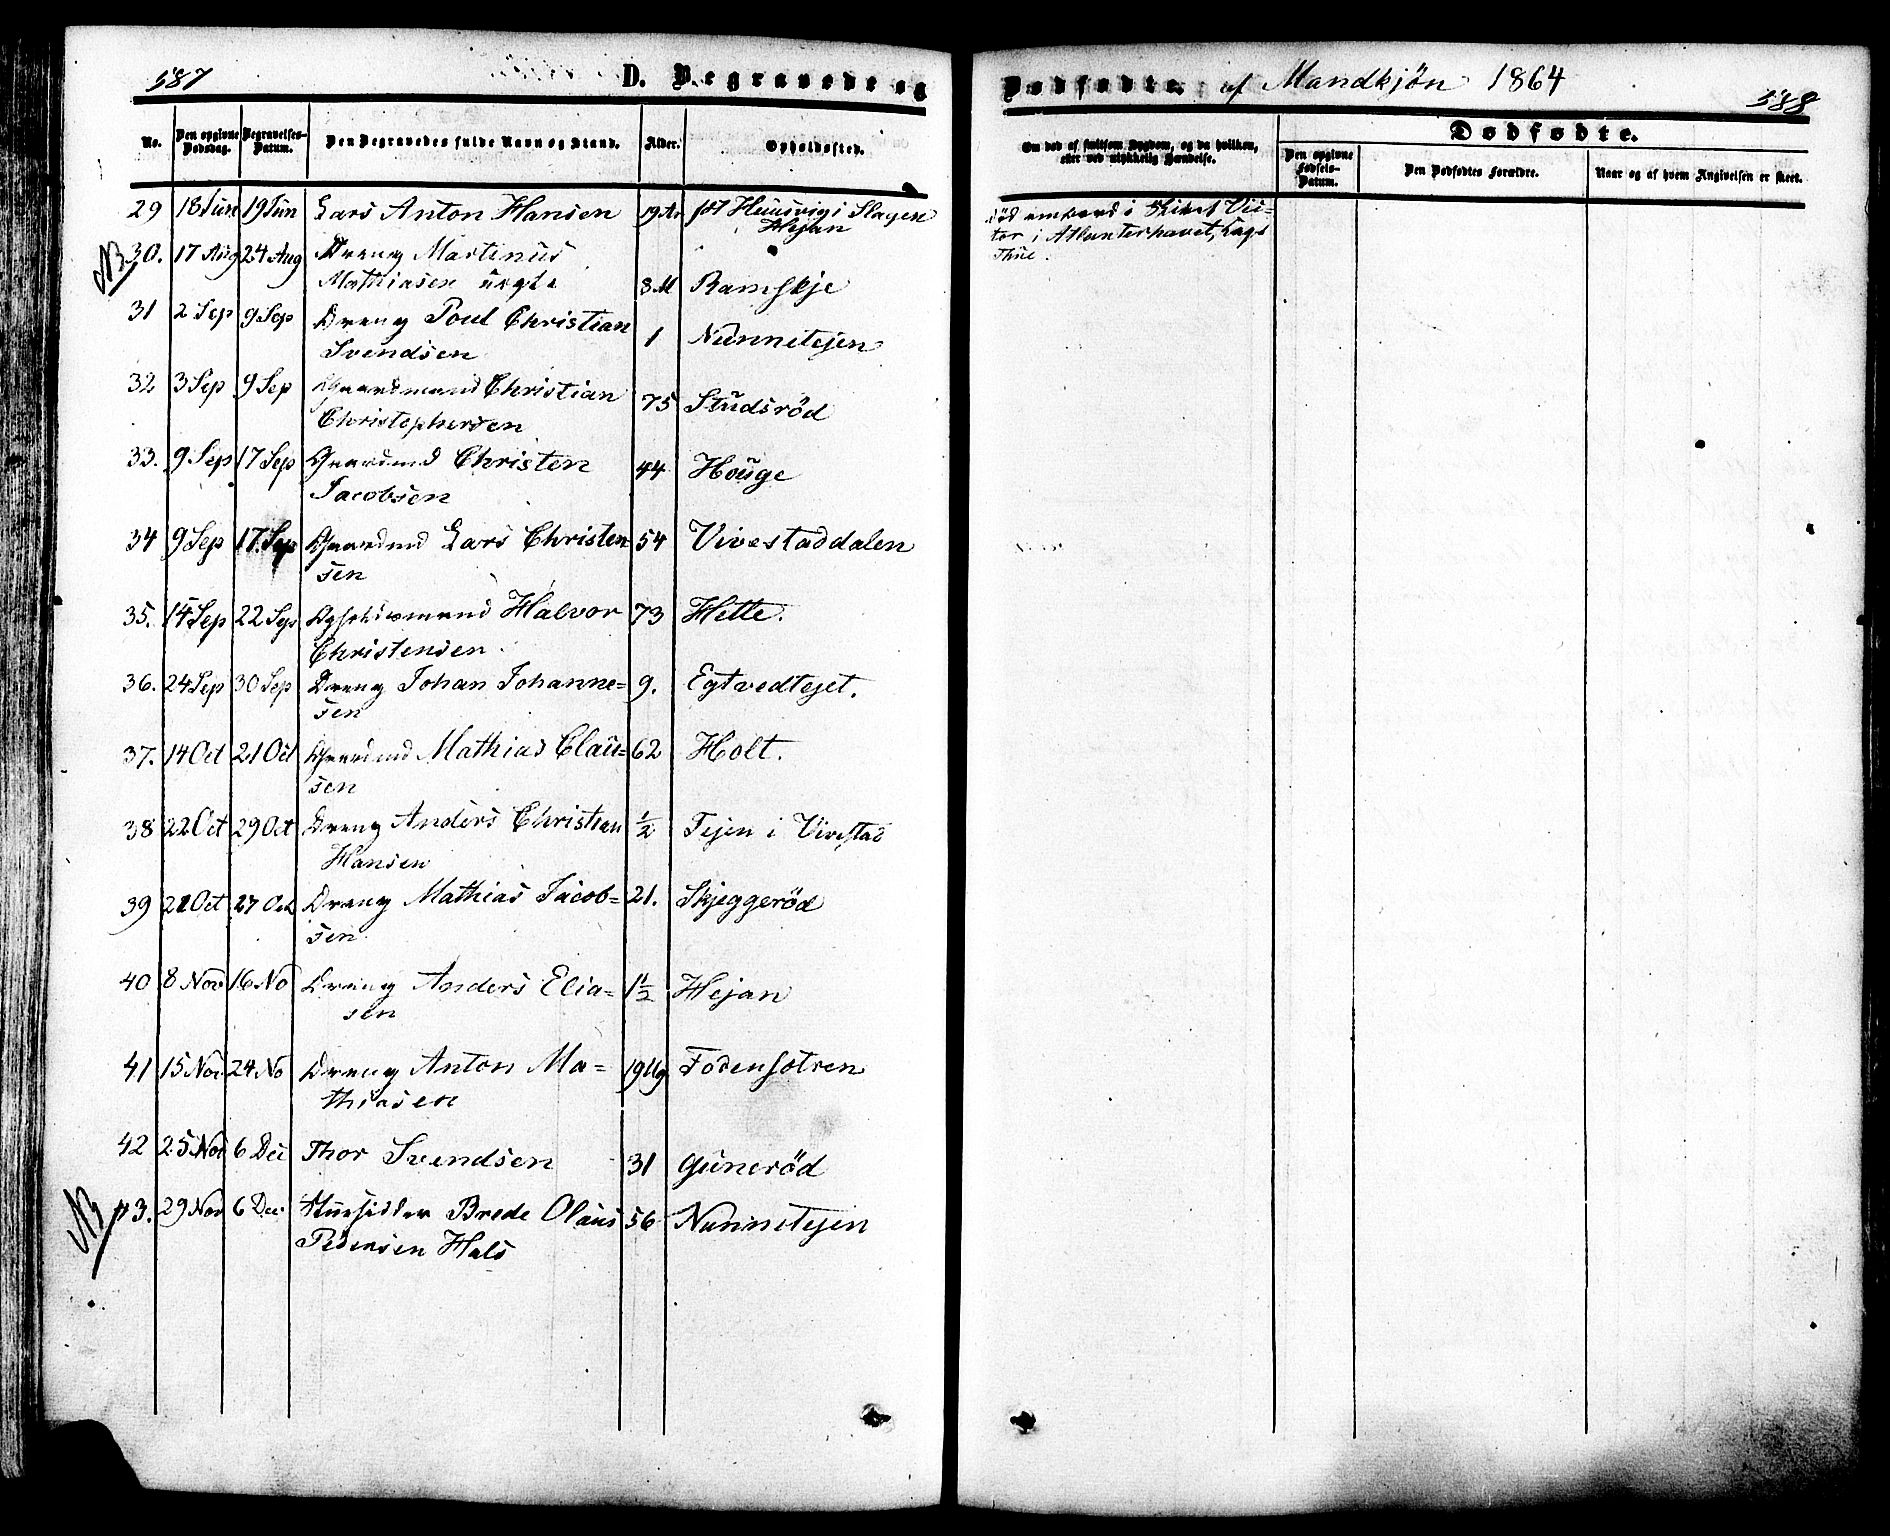 587
D. Begravede og
Dødfødte af Mandkjøn 1864
588
No.
Den opgivne Dødsdag.
Begravelses-Datum.
Den Begravedes fulde Navn og Stand.
Alder.
Opholdssted.
Om død af smitsom Sygdom, og da hvilken, eller ved ulykkelig Hændelse.
Dødfødte.
Den opgivne Fødsels-Datum.
Den Dødfødtes Forældre.
Naar og af hvem Angivelsen er skeet.
29 18 Jun 19 Jun Lars Anton Hansen 19 Ar Huusvig i Slagen
Hejan
død ombord i Skibet Vic=
tor i Atlanterhavet,
NB 30. 17 Aug 24 Aug Dreng Martinus
Mathiasen uegte 3 M Ramskje
31 2 Sep 9 Sep Dreng Poul Christian
Svendsen 1 Nunnetejen
32 3 Sep 9 Sep Gaardmand Christian
Christophersen 75 Studsrød
33. 9 Sep 17 Sep Gaardmd Christen
Jacobsen 44 Houge
34 9 Sep 17. Sep Gaardmd Lars Christen
sen 54 Vivestaddalen
35. 14 Sep 22 Sep Halvor 73 Hette.
Christensen.
36. 24 Sep 30 Sep Dreng Johan Johanne= 9. Egtvedtejet.
sen
37. 14 Oct 21 Oct Gaardmd Mathias Clau= 62 Holt.
sen
38 22 Oct 29 Oct Dreng Anders Christian ½ Tejen i Vivestad
Hansen
39 21 Oct 27 Oct Dreng Mathias Jacob= 21. Skjeggerød
sen
40 8 Nov 16 No Dreng Anders Elia= 1½ Hejan
sen
41 15 Nov 24 No Dreng Anton Ma= 19 Ug Fodensotren
thiasen
42 25 Nov 6 Dec Thor Svendsen 31 Gunerød
NB 43. 29 Nov 6 Dec Huusidder Brede Olaus 56 Nunnetejen
Pedersen Hals